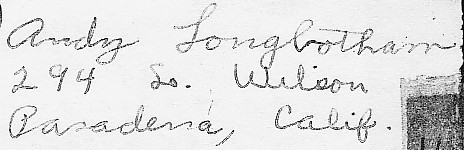 Andy Longbotham
294 So. Wilson
Pasadena, Calif.